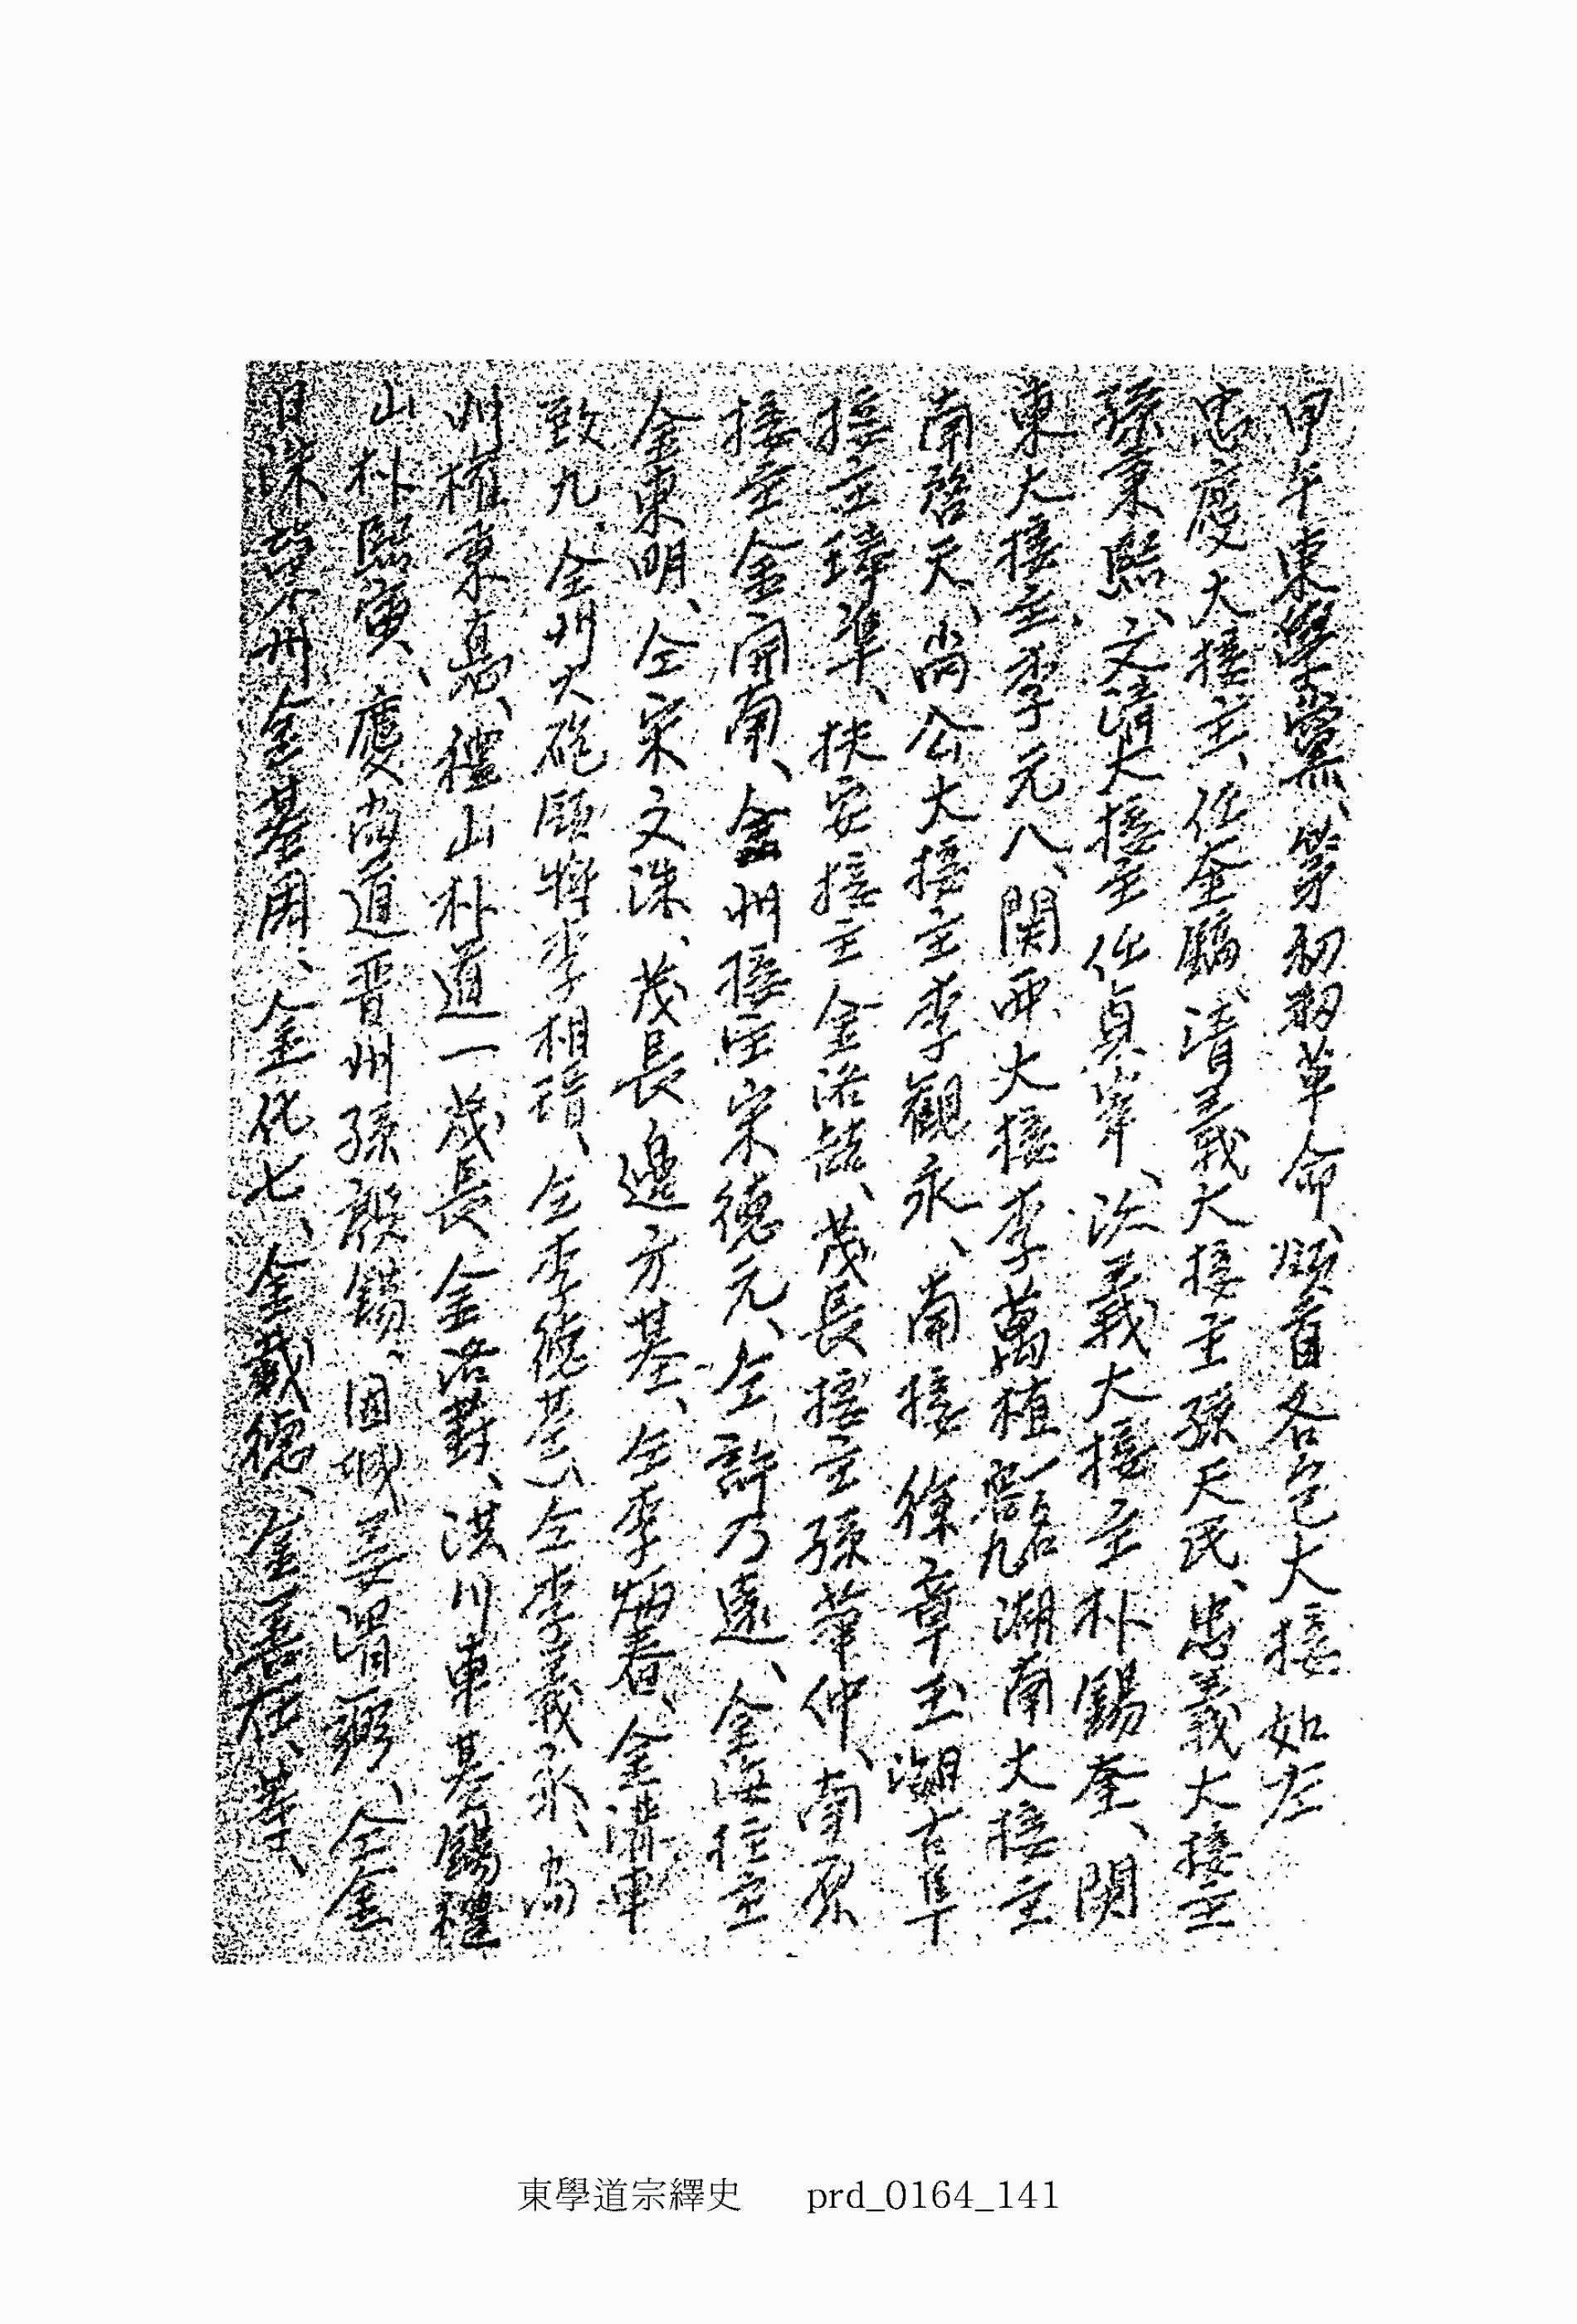 甲午東學黨、第初初革命、頭首各包大接如左
忠慶大接主、任奎鎬、清義大接主孫天民、忠義大接主
孫秉熙、文清大接主任貞宰、沃義大接主朴錫奎、関
東大接主、李元八、関西大接李萬植、湖南大接主
南啓天、尚公大接主李觀永、南接徐章玉湖古阜
接主琫準、扶安接主金洛喆、茂長接主孫華仲、南原
接主金開南、金州接主宋德元、仝許乃遠、金海接主
金東明、仝宋文洙、茂長邊方基、仝李炳春、金溝車
致九、全州大砲領將李相璡、仝李德基、仝李義承、尚
州權秉悳、禮山朴道一茂長金洛葑、洪川車基錫禮
山朴熙寅、慶尚道晋州孫殷錫、固城姜渭弼、仝金
日洙、州金基周、金化七、金戴德、金善在、等、
東學道宗繹史 prd_0164_141